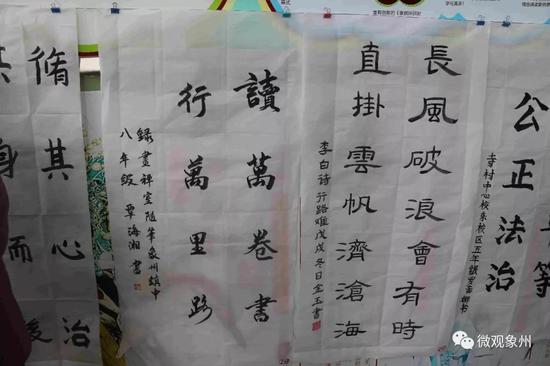 等
公正法治
長風破浪會有時
直掛雲帆濟滄海
李白诗行路难戊戌冬日金玉書
讀萬卷書
行萬里路
錄畫禪室随筆象州鎮中
八年級 覃海湘書
脩其心治
其身而後
微观象州